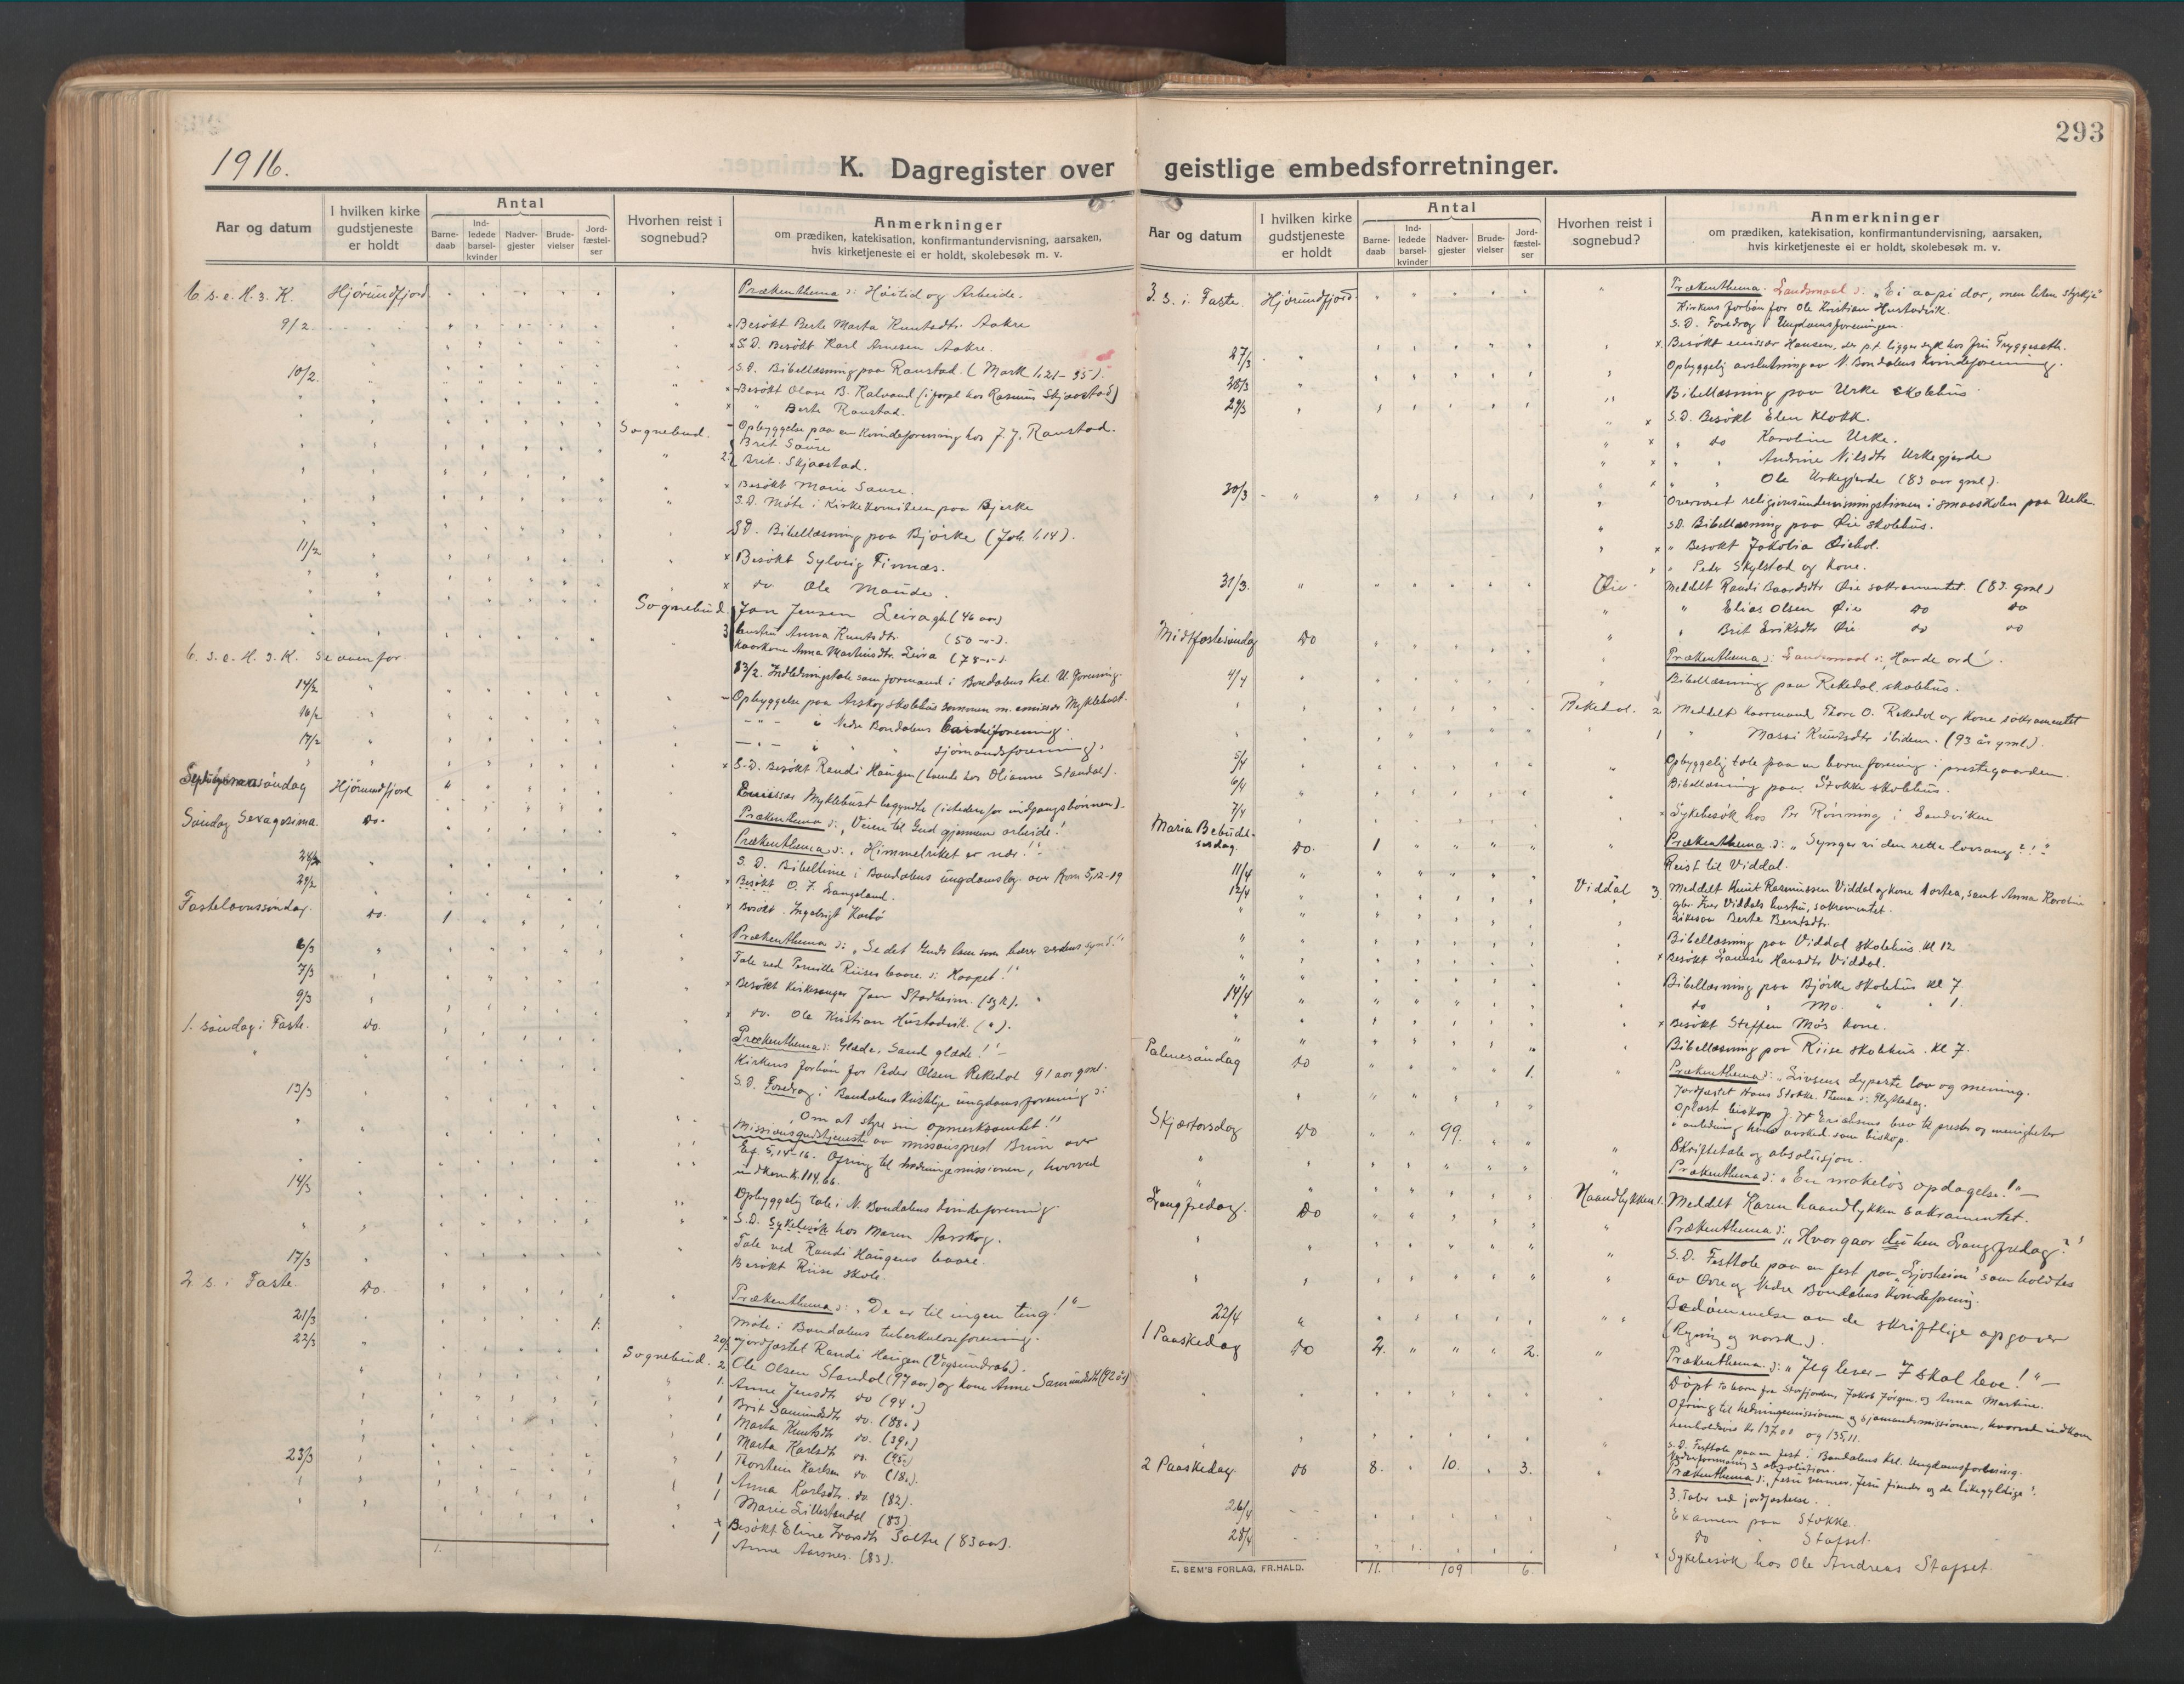 293
1916.
K. Dagregister over geistlige embedsforretninger.
Aar og datum
I hvilken kirke gudstjeneste er holdt
Antal
Barne-daab
Ind-ledede barsel-kvinder
Nadver-gjester
Brude-vielser
Jord-fæstel-ser
Hvorhen reist i sognebud?
Anmerkninger
om prædiken, katekisation, konfirmantundervisning, aarsaken,
hvis kirketjeneste ei er holdt, skolebesøk m. v.
6 s. e. H. 3. K. Hjørundfjord Prækenthema ɔ: Høitid og Arbeide.
9/2. × Besøkt Berte Marta Knutsdtr. Aakre
× S.D. Besøkt Karl Arnesen Aakre.
10/2. S.D. Bibellæsning paa Ranstad. (Mark 1,21-35).
× Besøkt Olave B. Kalvand
× " Berte Ranstad.
- Opbyggelse paa en kvindeforening hos J. J. Ranstad.
Sognebud. Brit Saure
" 2 Brit Skjaastad.
× Besøkt Marie Saure.
S.D. Møte i Kirkekomiteen paa Bjerke
S.D. Bibellæsning paa Bjørke (Joh. 1,14).
11/2 × Besøkt Sylveig Finnes.
× do Ole Maude.
Sognebud Jon Jensen Leira (46 aar)
3 hustru Anna Knutsdtr. (50 -"-).
Kaarkone Anna Martinsdtr. Leira (78 -"-).
6. s. e. H. 3. K. se ovenfor 13/2. Indledningstale som formand i Bondalens Krl. U. forening.
14/2 - Opbyggelse paa Arskog skolehus sammen m. emissær Myklebust.
16/2 - " - i Nedre Bondalens kvindeforening.
17/2 - " - sjømandsforening.
× S.D. Besøkt Randi Haugen (hos Olianne Standal).
søndag Hjørundfjord Emissær Myklebust begyndte (istedenfor indgangsbønnen).
Prækenthema ɔ: "Veien til Gud gjennem arbeide!"
Søndag Sexagesima do. Prækenthema ɔ: "Himmelriket er nær!"
24/2 S.D. Bibeltime i Bondalens ungdomslag over Rom 5,12-19
29/2 × Besøkt O. J. Langeland.
× Besøkt Ingebrigt Karbø
Fastelavnssøndag do. 1 Prækenthema ɔ: "Se det Guds lam som bærer verdens synd!"
6/3 Tale ved Pernille Riises baare ɔ: Haapet!"
7/3 × Besøkt Kirkesanger Jon Stadheim (syk).
9/3 × do. Ole Kristian Hustadvik (").
1. søndag i Faste. do. Prækenthema ɔ: Glæde, Sand glæde!"-
Kirkens forbøn for Peder Olsen Rekedal 91 aar gml.
S.D. Foredrag i Bondalens kristlige ungdomsforening ɔ:
Om at styre sin opmerksomhet!"
13/3 Missionsgudstjeneste av missionsprest Bruun over
Ef. 5,14-16. Ofring til hedningemissionen, hvorved
indkom k. 114.66.
14/3 Opbyggelig tale i N. Bondalens kvindeforening
× S.D. Sykebesøk hos Maren Aarskog.
Tale ved Randi Haugens baare.
17/3 Besøkt Riise skole.
2. s. i Faste. do. Prækenthema ɔ: "De er til ingen ting!"-
21/3 Møte i Bondalens tuberkuloseforening.
22/3 1. Jordfæstet Randi Haugen
Sognebud. 2 Ole Olsen Standal (97 aar) og kone Anne Samundsdtr (92 år)
1. Anne Jensdtr do (94.)
1 Brit Samundsdtr do. (88.)
1 Marta Knutsdtr do. (39.)
1 Marta Karlsdtr do. (95.)
1 Thorstein Karlsen do (18.).
1 Anna Karlsdtr. do (82).
23/3 1 Marie Lillestandal (83)
× Besøkt Eline Iversdtr Sæltre (83 aar).
1 Anne Aarsnes. (83).
1.
Aar og datum
I hvilken kirke gudstjeneste er holdt
Antal
Barne-daab
Ind-ledede barsel-kvinder
Nadver-gjester
Brude-vielser
Jord-fæstel-ser
Hvorhen reist i sognebud?
Anmerkninger
om prædiken, katekisation, konfirmantundervisning, aarsaken,
hvis kirketjeneste ei er holdt, skolebesøk m. v.
3. s. i Faste. Hjørundfjord. Prækenthema. Landsmaal ɔ: "Ei aapi dør, men liten styrkje"
Kirkens forbøn for Ole Kristian Hustadvik.
S.D. Foredrag i Ungdomsforeningen.
× Besøkt emissær Hansen, der p.t. ligger syk hos fru Tryggeseth.
27/3 Opbyggelig avslutning av N. Bondalens kvindeforening.
28/3 Bibellæsning paa Urke skolehus
29/3 × S.D. Besøkt Elen Klokk.
× " do Karoline Urke.
× " " Andrine Nilsdtr Urkegjerde
× " " Ole Urkegjerde (83 aar gml).
30/3 Overværet religionsundervisningstimen i smaaskolen paa Urke
S.D. Bibellæsning paa Øie skolehus.
× " Besøkt Jakobia Øiehol.
× " Peder Skylstad og kone.
31/3. Øie. Meddelt Randi Baardsdtr Øie sakramentet. (83 gml)
" Elias Olsen Øie do do
" Brit Eriksdtr Øie do do
Midfastesøndag do Prækenthema ɔ: Landsmaal ɔ: "Harde ord".
4/4 Bibellæsning paa Rekedal skolehus.
Rekedal. 2 Meddelt kaarmand Thore O. Rekedal og kone sakramentet
1 " Massi Knutsdtr ibidem. (93 år gml).
5/4 Opbyggelig tale paa en barneforening i prestegaarden.
6/4 Bibellæsning paa Stokke skolehus.
7/4 × Sykebesøk hos Per Rønning i Sandviken
Maria Bebudelsesdag. do. 1 Prækenthema ɔ: "Synger vi den rette lovsang?!"-
11/4 Reist til Viddal.
12/4 Viddal 3. Meddelt Knut Rasmussen Viddal og kone Dortea, samt Anna Karoline
gbr. Iver Viddals hustru, sakramentet.
Likesaa Berte Berntsdtr.
Bibellæsning paa Viddal skolehus kl 12
× Besøkt Lauise Hansdtr Viddal.
Bibellæsning paa Bjørke skolehus kl 7.
14/4 do " Mo. " " 1.
× Besøkt Steffen Mo's kone.
Bibellæsning paa Riise skolehus. kl 7.
Palmesøndag do 1. Prækenthema ɔ: "Livsens dypeste lov og mening.
Jordfæstet Hans Stokke. Thema ɔ: Flyttedag.
Oplæst biskop J. W. Erichsens brev til prester og menigheter
i anledning hans avsked som biskop.
Skjærtorsdag do 99. Skriftetale og absolusjon.
Prækenthema ɔ: "En makeløs opdagelse!"-
Haandlykken 1. Meddelt Karen Haandlykken sakramentet.
Langfredag. do Prækenthema ɔ: "Hvor gaar du hen Langfredag?"
S.D. Festtale paa en fest paa "Ljosheim" som holdtes
av Øvre og Nedre Bondalens Kvindeforening.
22/4 Bedømmelse av de skriftlige opgaver
(Regning og norsk).
1 Paaskedag do 2. 2. Prækenthema ɔ: "Jeg lever - I skal leve!"-
Døpt to barn fra Storfjorden, Jakob Jørgen og Anna Martine.
Ofring til hedningemissionen og sjømandsmissionen, hvorved indkom
henholdsvis kr 137,00 og 135,11.
S.D. Festtale paa en fest i Bondalens Krl. Ungdomsforening.
2 Paaskedag. do 8. 10. 3. absolution.
Prækenthema ɔ: Jesu venner, Jesu fiender og de likegyldige!
3 taler ved jordfæstelse.
26/4 Examen paa Stokke.
28/4 do Stafset.
× Sykebesøk hos Ole Andreas Stafset.
11. 109 6.
E. SEM'S FORLAG, FR.HALD.